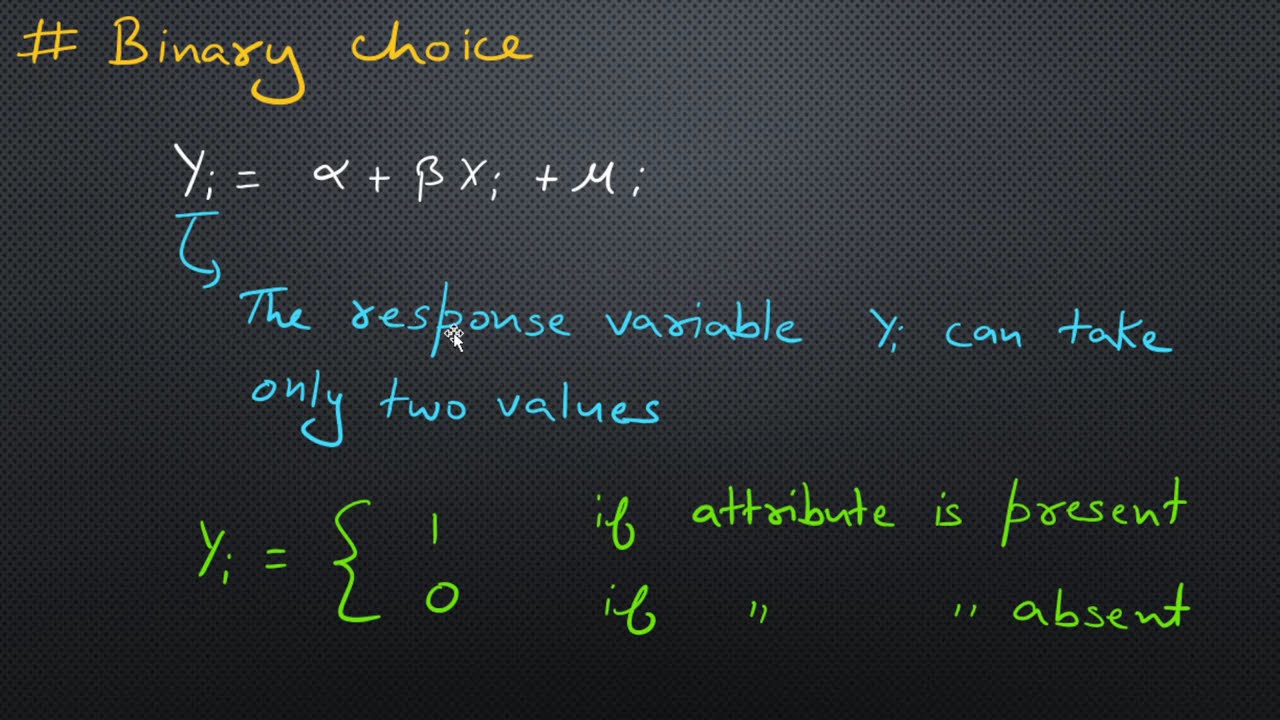 # Binary choice
Yi = α + β Xi + μi
The response variable Yi can take
only two values
Yi = { 1 if attribute is present
0 if " " absent